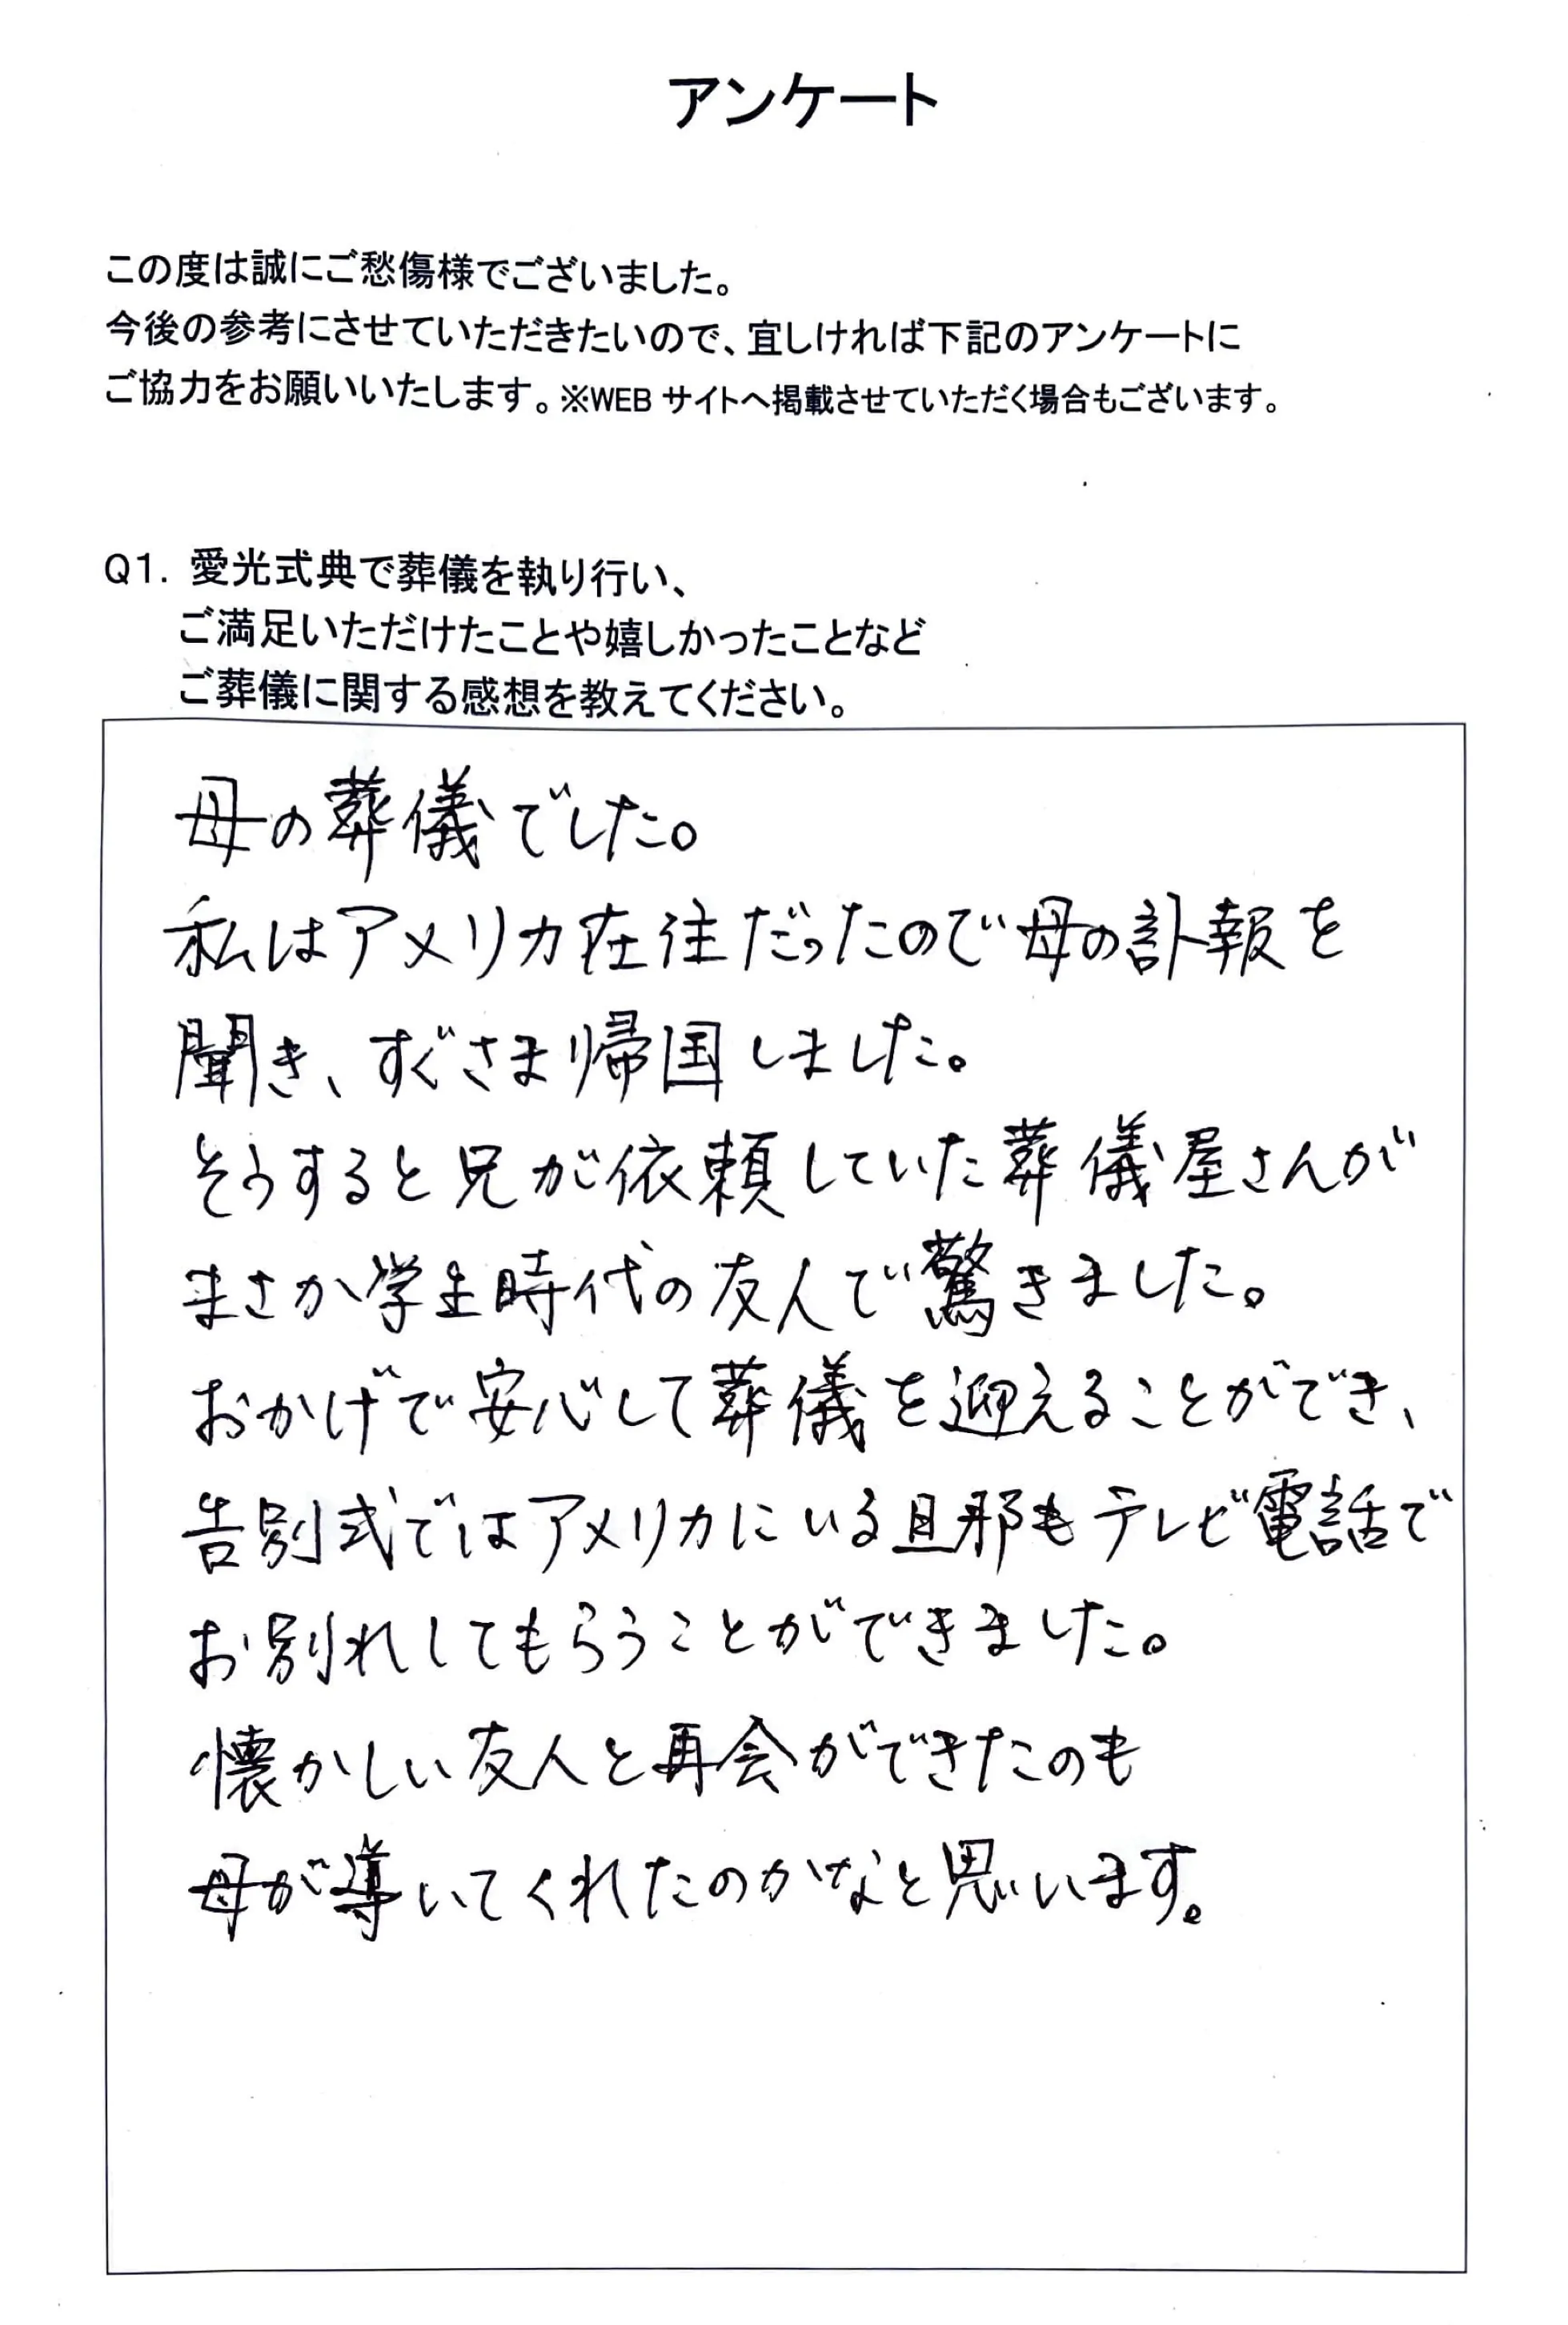 アンケート
この度は誠にご愁傷様でございました。
今後の参考にさせていただきたいので、宜しければ下記のアンケートに
ご協力をお願いいたします。※WEB サイトへ掲載させていただく場合もございます。
Q1. 愛光式典で葬儀を執り行い、
ご満足いただけたことや嬉しかったことなど
ご葬儀に関する感想を教えてください。
母の葬儀でした。
私はアメリカ在住だったので母の訃報を
聞き、すぐさま帰国しました。
そうすると兄が依頼していた葬儀屋さんが
まさか学生時代の友人で驚きました。
おかげで安心して葬儀を迎えることができ、
告別式ではアメリカにいる旦那もテレビ電話で
お別れしてもらうことができました。
懐かしい友人と再会ができたのも
母が導いてくれたのかなと思います。